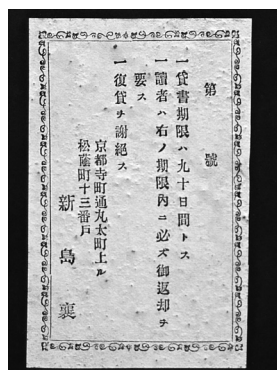 第　號
一貸書期限ハ九十日間トス
一讀者ハ右ノ期限內ニ必ズ御返却ヲ
要ス
一復貸ヲ謝絕ス
京都寺町通丸太町上ル
松蔭町十三番戶
新島襄